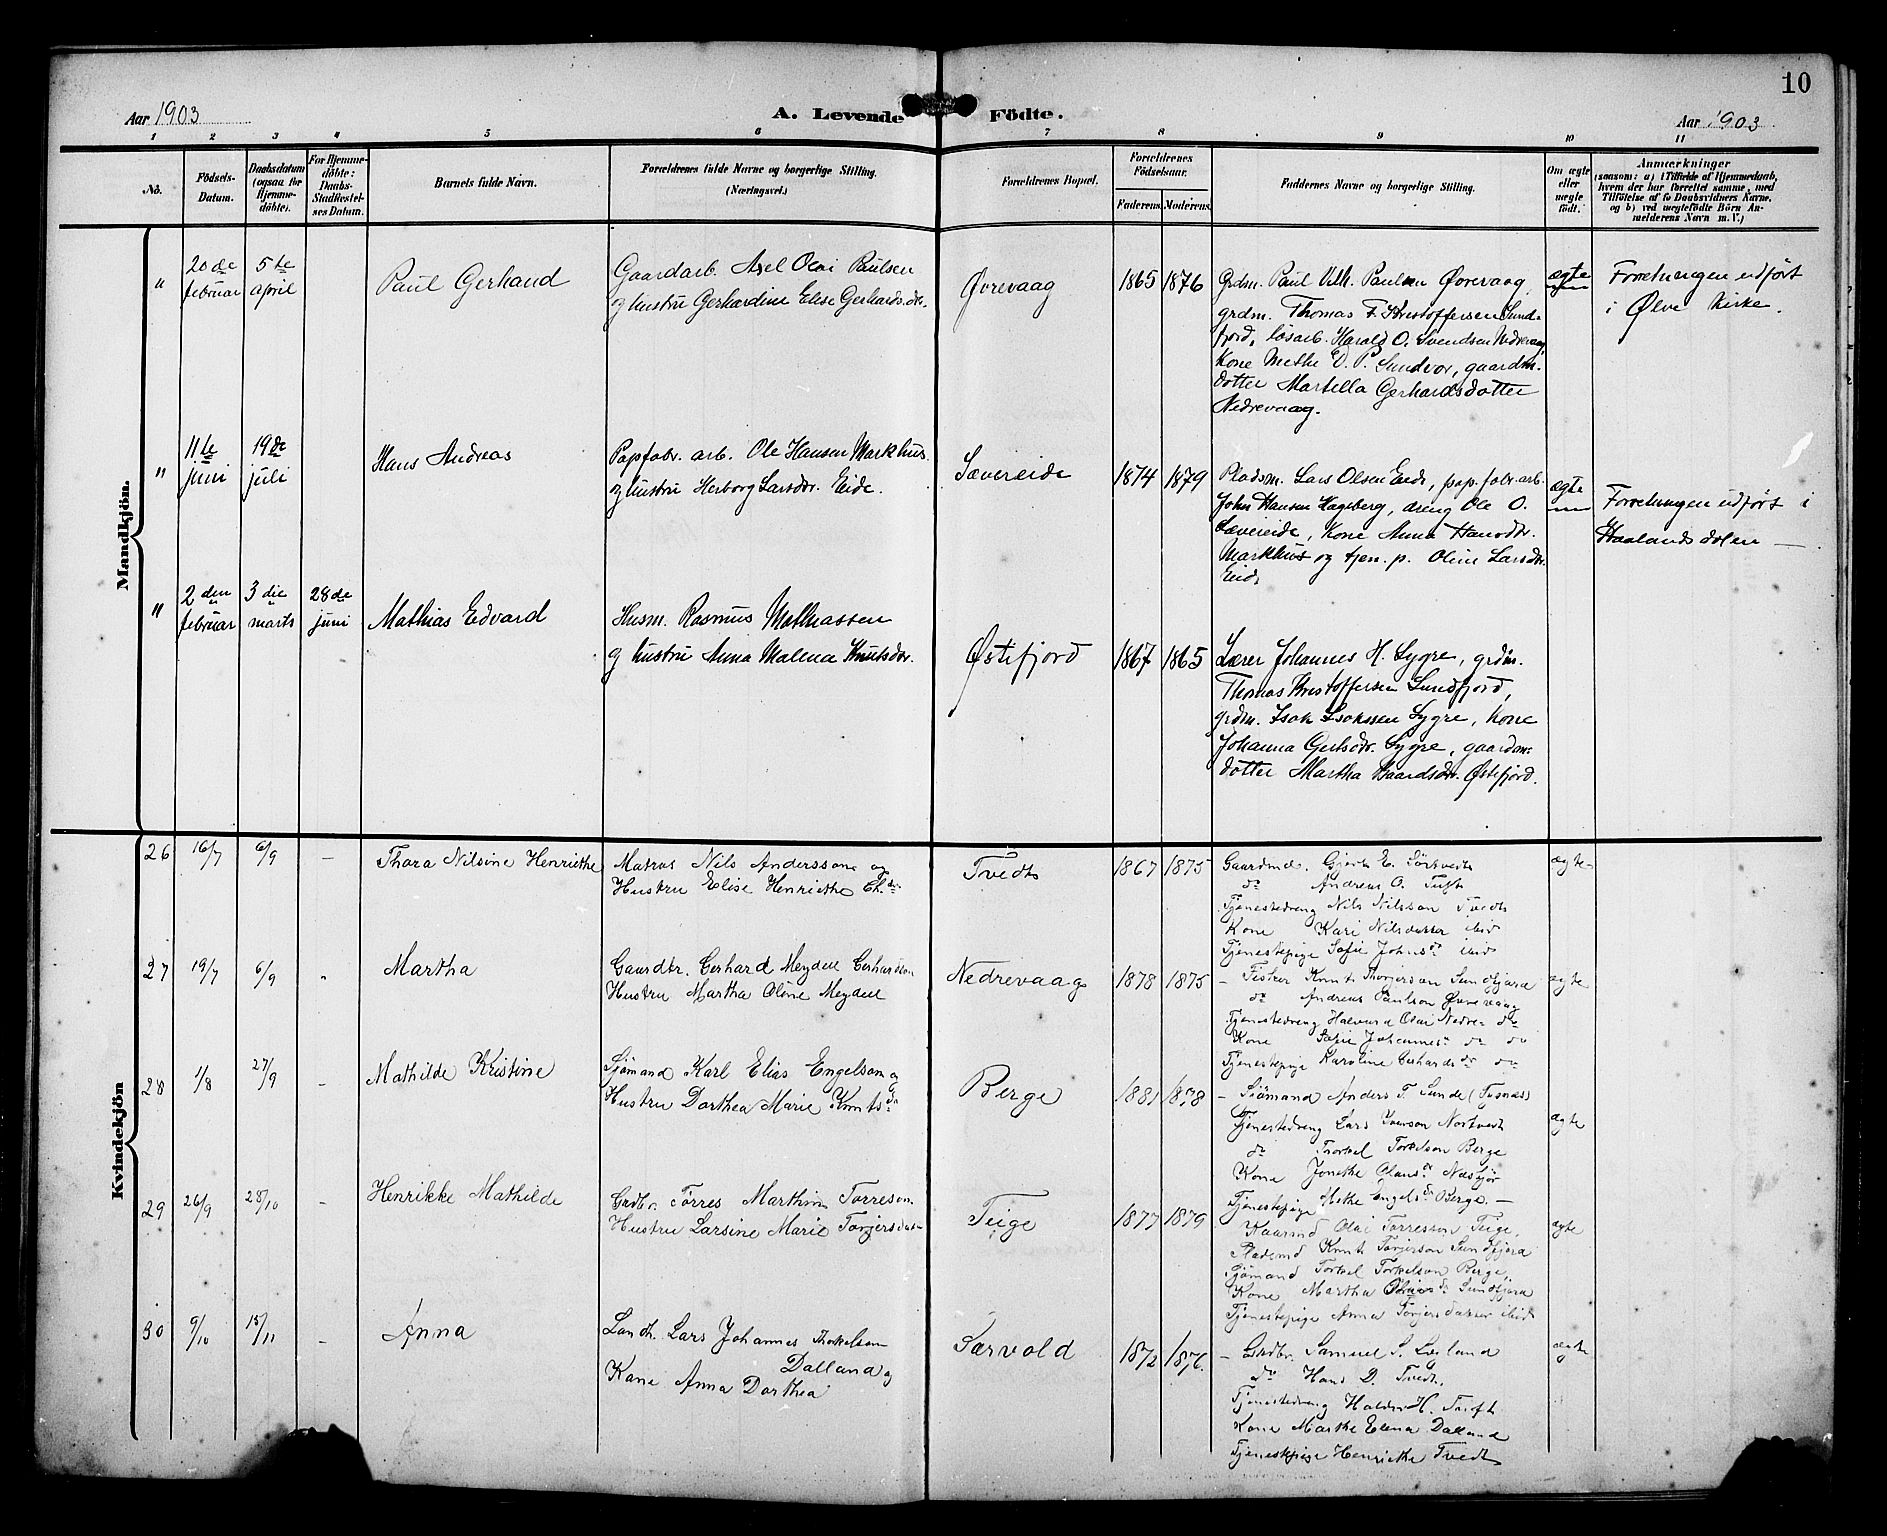 10
Aar 1903
A. Levende Födte.
Aar 1903
1 2 3 4 5 6 7 8 9 10 11
No.
Födsels-
Datum.
Daabsdatum
(ogsaa for
Hjemme-
döbte).
For Hjemme-
döbte:
Daabs-
Stadfæstel-
ses Datum.
Barnets fulde Navn.
Forældrenes fulde Navne og borgerlige Stilling.
(Næringsvei.)
Forældrenes Bopæl.
Forældrenes
Födselsaar.
Faderens. Moderens.
Faddernes Navne og borgerlige Stilling.
Om ægte
eller
uægte
født.
Anmærkninger
(saasom: a) i Tilfælde af Hjemmedaab,
hvem der har forrettet samme, med
Tilföielse af to Daabsvidners Navne,
og b) ved uægtefödte Börn An-
melderens Navn m. V.)
Mandkjön.
" 20de februar
5te april
Paul Gerhard
Gaardarb. Axel Olai Paulsen
og hustru Gerhardine Elise Gerhardsdr.
Øvrevaag
1865 1876
Grdm. Paul Vilh. Paulsen Øvrevaag,
grdm. Thomas F. Kristoffersen Sund-
fjord, løsarb. Harald O. Svendsen Nedrevaag,
Kone Methe D. P. Sundvor, gaardm.
dotter Martella Gerhardsdotter
Nedrevaag.
ægte
Forretningen udført
i Ølve Kirke.
" 11te juni
19de juli
Hans Andreas
Papfabr. arb. Ole Hansen Markhus
og hustru Herborg Larsdr. Eide.
Sævereide
1874 1879
Pladsm. Lars Olsen Eide, pap. fabr. arb.
Johs Hansen Hageberg, dreng Ole O.
Sævereide, Kone Anna Hansdr.
Markhus og tjen. p. Oline Larsdr.
Eide
ægte
Forretningen udført i
Haalandsdalen —
" 2den februar
3die marts
28de juni
Mathias Edvard
Husm. Rasmus Mathiassen
og hustru Anna Malena Knutsdr.
Østifjord
1867 1865
Lærer Johannes H. Sygre, grdm.
Thomas Kristoffersen Sundfjord,
grdm. Isak Isakssen Sygre, Kone
Johanna Gertsdr. Sygre, gaardm-
dotter Martha Baardsdr. Østifjord.
Kvindekjön
26 16/7 6/9 —
Thora Nilsine Henriethe
Matros Nils Anderssone og
Hustru Elise Henriethe Th.dr
Tvedt
1867 1875
Gaardmd. Gjert E. Sörtvedt
do Andreas O. Tuft
Tjenestedreng Nils Nilsson Tvedt
Kone Kari Nilsdatter ibid
Tjenestepige Sofie Johnsdr ibid
ægte
27 19/7 6/9 "
Martha
Gaardbr. Gerhard Meydell Gerhardson
Hustru Martha Oline Meydell
Nedrevaag
1878 1875
— Fisker Knut Thorjerson Sundfjord
do Andreas Paulson Øvrevaag
Tjenestedreng Halvard Olai Nedre do
Kone Sofie Johannesdr do do
Tjenestepige Karoline Gerhardsdr do
ægte
28 1/8 27/9 —
Mathilde Kristine
Sjömand Karl Elias Engelson og
Hustru Dorthea Marie Knutsdr
Berge
1881 1878
— Siömand Anders T. Sunde (Tysnæs)
Tjenestedreng Lars Iverson Nortvedt
do Torkel Torkelson Berge
Kone Jonethe Olausdr Næsbjör
Tjenestepige Methe Engelsdr Berge. —
ægte
29 26/9 28/10 —
Henrikke Mathilde
Grdbr. Törres Marthin Torreson
Hustru Larsine Marie Torgersdatr
Teige
1877 1879
Kaarmd Olai Torresson Teige,
Pladsmd Knut Torjerson Sundfjord
Sjömand Torkel Torkelson Berge,
Kone Martha Olsdr Sundfjord
Tjenestepige Anna Torjersdatter ibid
ægte
30 9/10 15/11 —
Anna
Landh. Lars Johannes Thorkelson
Dalland og
Kone Anna Dorthea
Sørvold
1872 1876.
— Grdbr. Samuel S. Lieland
do Hans D. Tvedt,
Tjenestedreng Haldor H. Tuft
Kone Marthe Elena Dalland
Tjenestepige Henriethe Tvedt
ægte